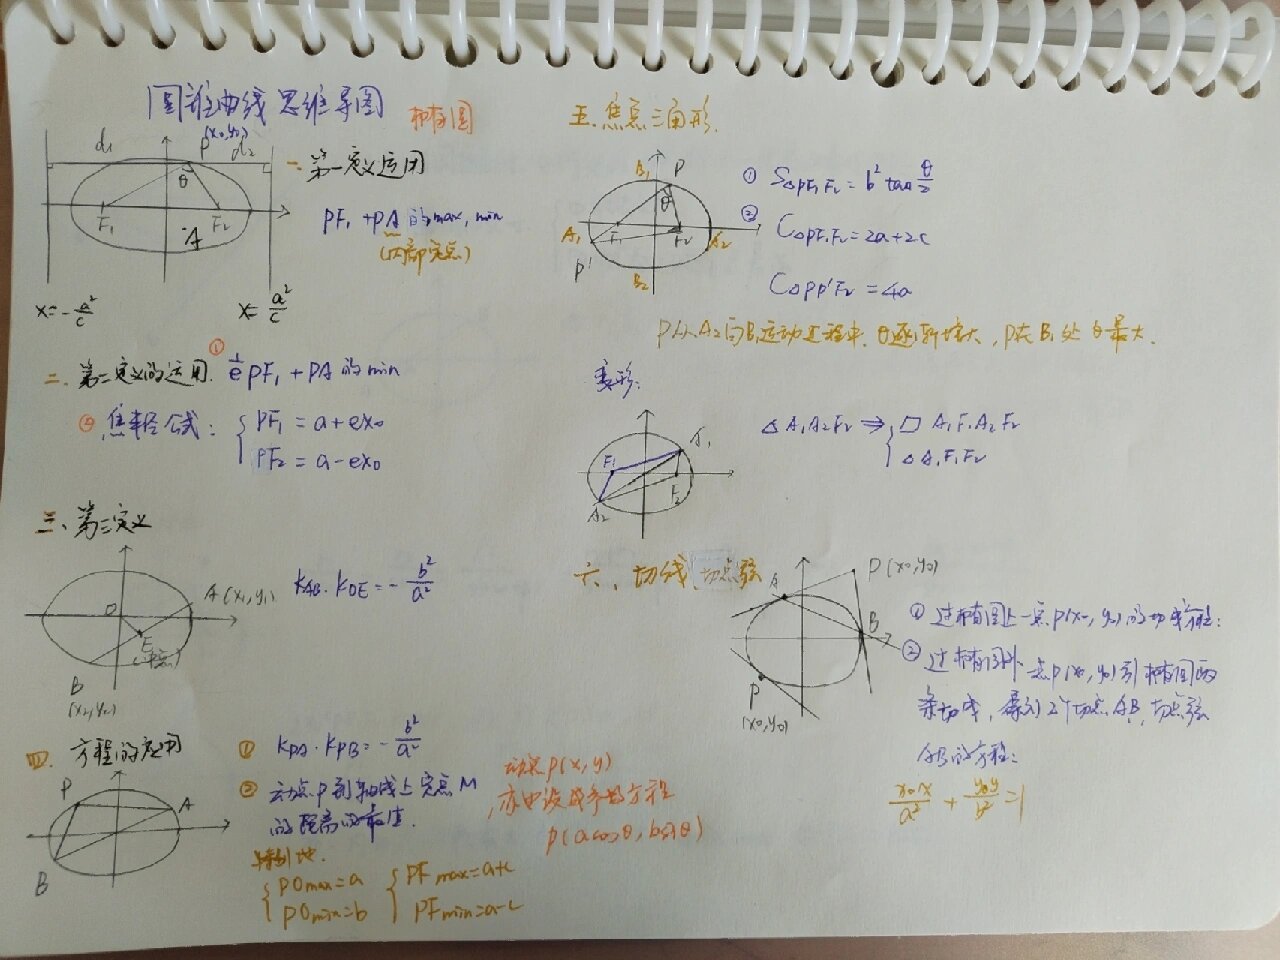 圆锥曲线思维导图
椭圆
P(x₀,y₀)
d₁
d₂
θ
F₁
F₂
A
x=-a²/c
x=a²/c
一、第一定义运用
PF₁+PA的max,min
(内部定点)
二、第二定义的运用
① 1/e PF₁+PA的min
② 焦半径公式:
PF₁=a+ex₀
PF₂=a-ex₀
三、第三定义
O
A(x₁,y₁)
E
(中点)
B
(x₂,y₂)
K_AB·K_OE=-b²/a²
四、方程的应用
P
A
B
① K_PA·K_PB=-b²/a²
② 动点P到轴线上定点M
的距离的最值.
特别地.
PO max=a
PO min=b
PF max=a+c
PF min=a-c
动点P(x,y)
亦申设成参数方程
P(acosθ,bsinθ)
五、焦点三角形.
B₁
P
θ
A₁
F₁
F₂
A₂
P'
B₂
① S△PF₁F₂=b²tanθ/2
② C△PF₁F₂=2a+2c
C△PP'F₂=4a
P从A₂向B₁运动过程中,θ逐渐增大,P在B₁处θ最大.
变形:
A₁
F₁
F₂
A₂
△A₁A₂F₂⇒
□A₁F₁A₂F₂
△A₁F₁F₂
六、切线,切点弦
P(x₀,y₀)
A
B
P
(x₀,y₀)
① 过椭圆上一点P(x₀,y₀)的切线方程:
② 过椭圆外一点P(x₀,y₀)引椭圆两
条切线,得到2个切点A,B,切点弦
AB的方程:
x₀x/a²+y₀y/b²=1